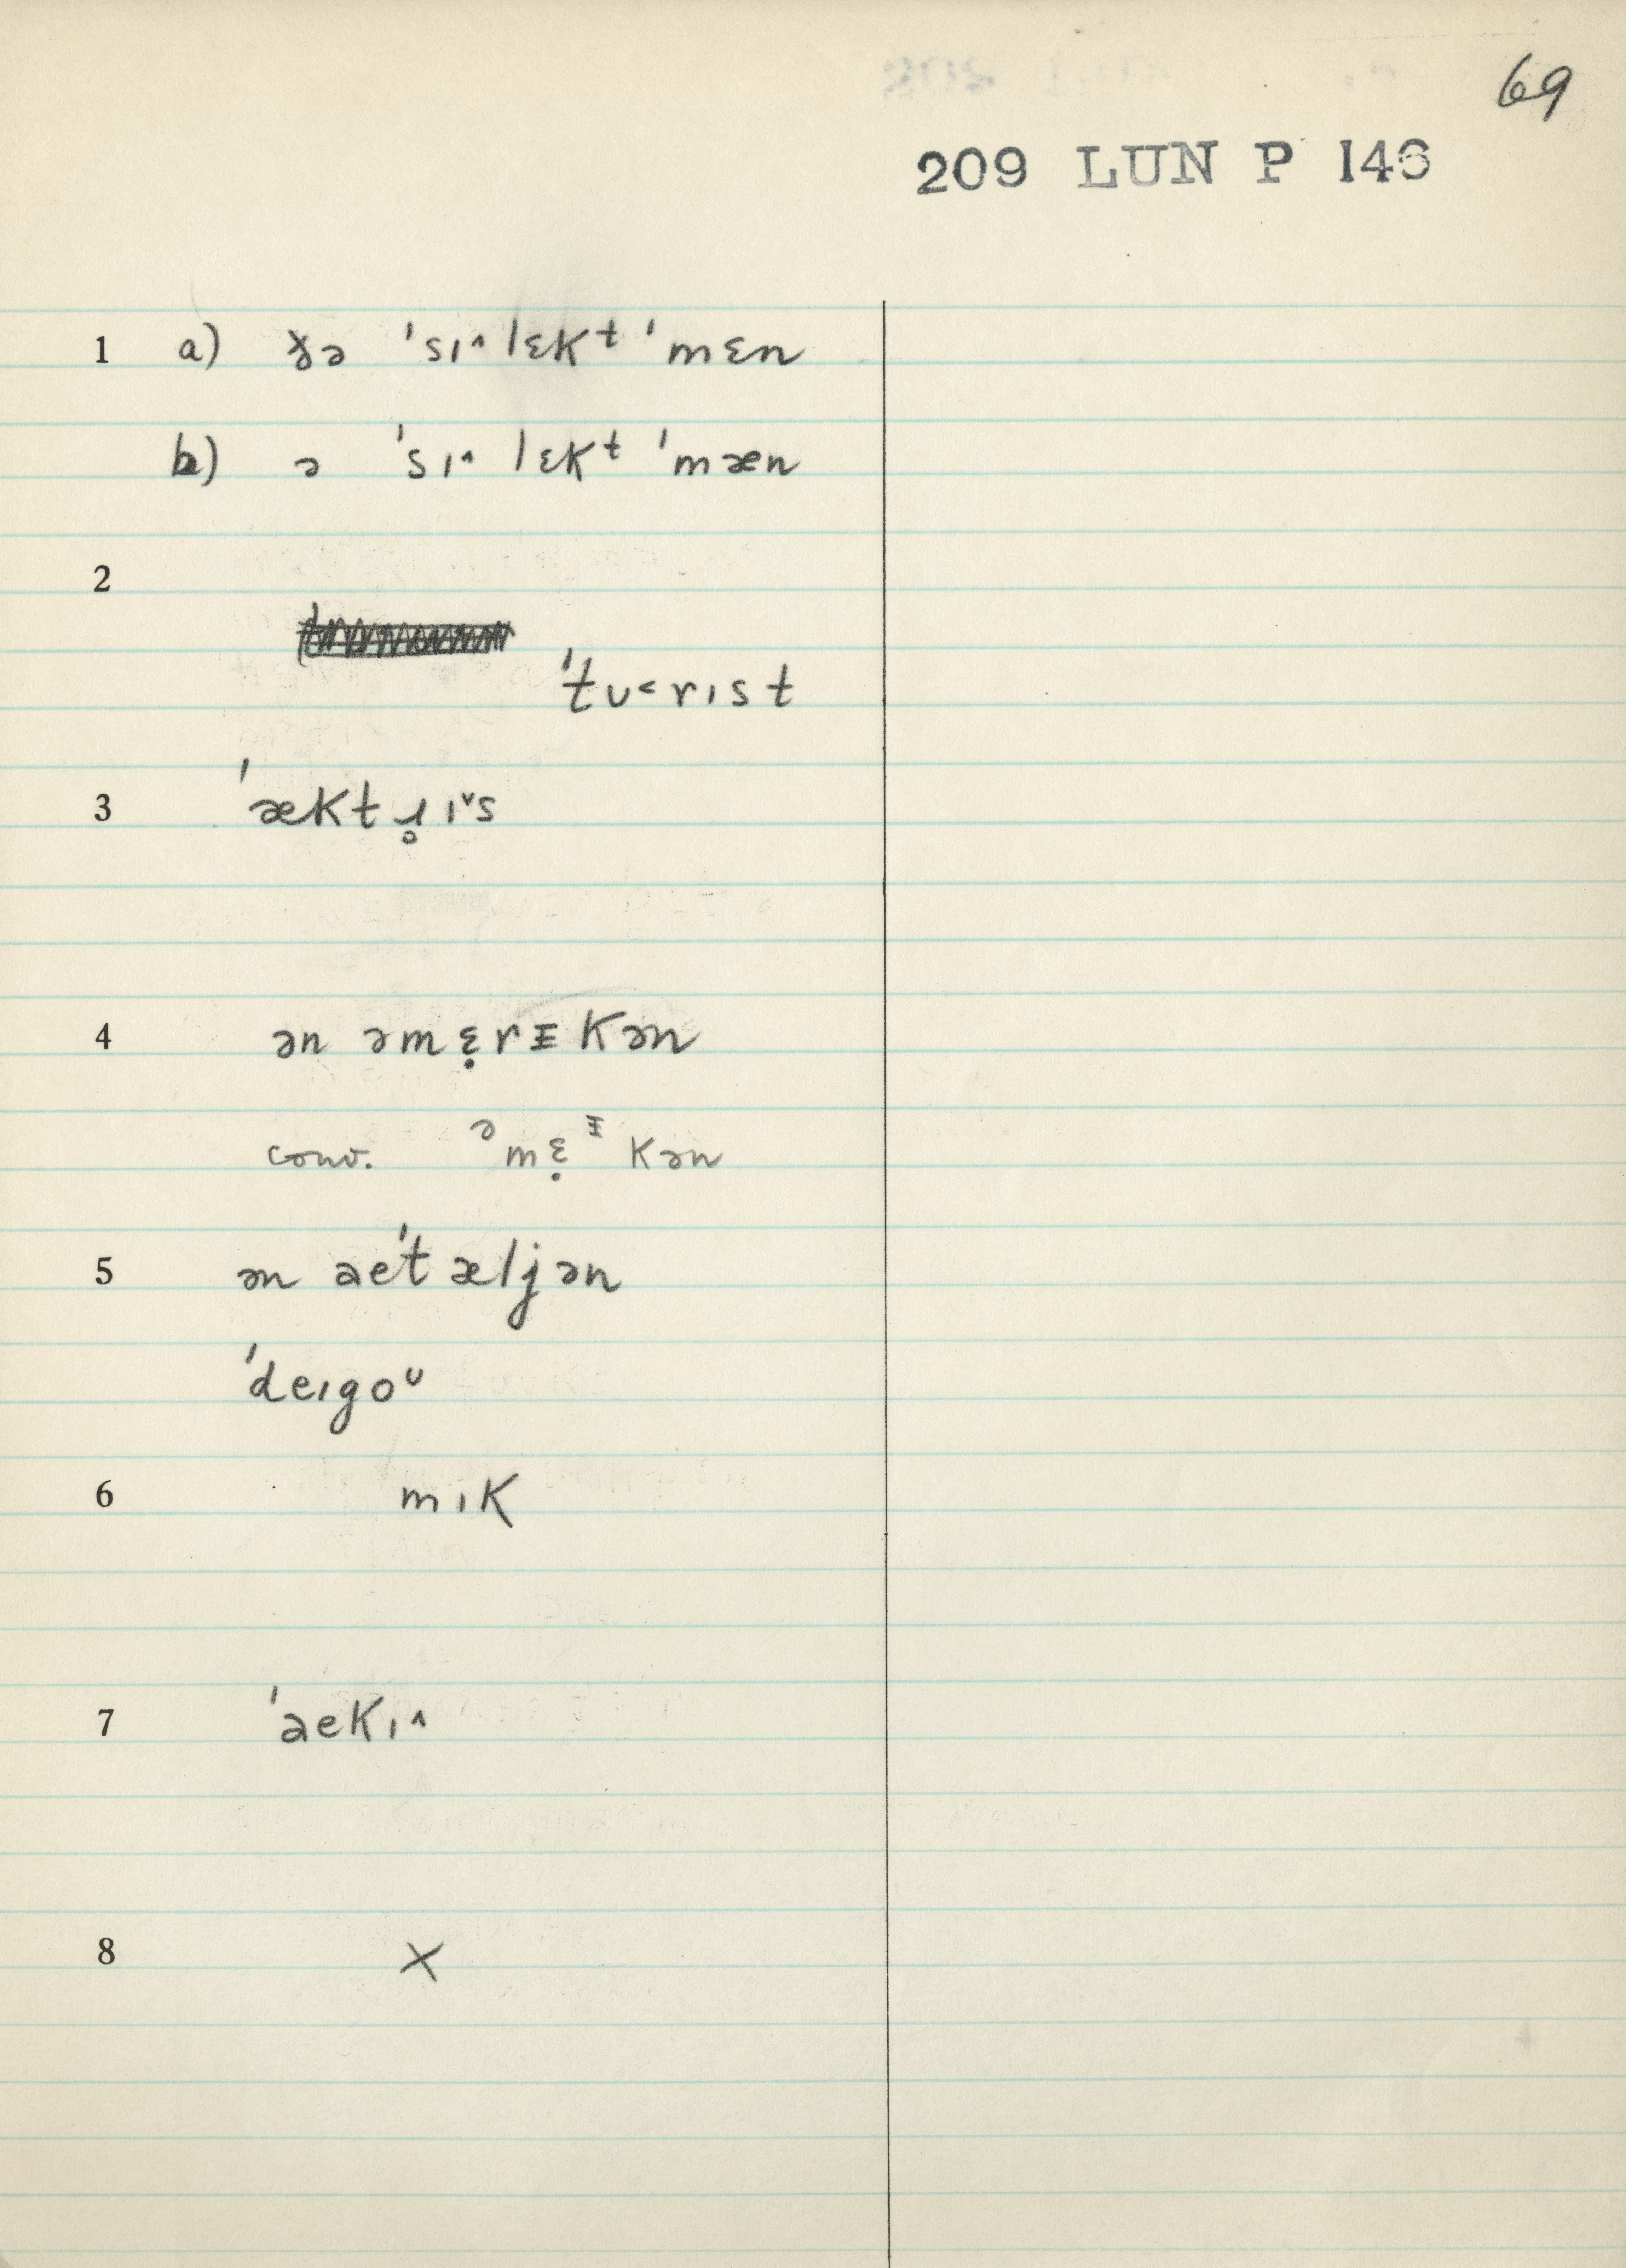 69
209 LUN P 146
1 a) ðə ˈsɪ˄lɛkᵗ ˈmɛn
b) ə ˈsɪ˄lɛkᵗ ˈmæn
2
ˈtʊ˂rɪst
3 ˈæktɹ̥ɪ˅s
4 ən əmɛ̣rᵻkən
conv. ᵊmɛ̣ᵻkən
5 ən aeˈtæljən
ˈdeɪgoᶷ
6 mɪk
7 ˈaekɪ˄
8 X